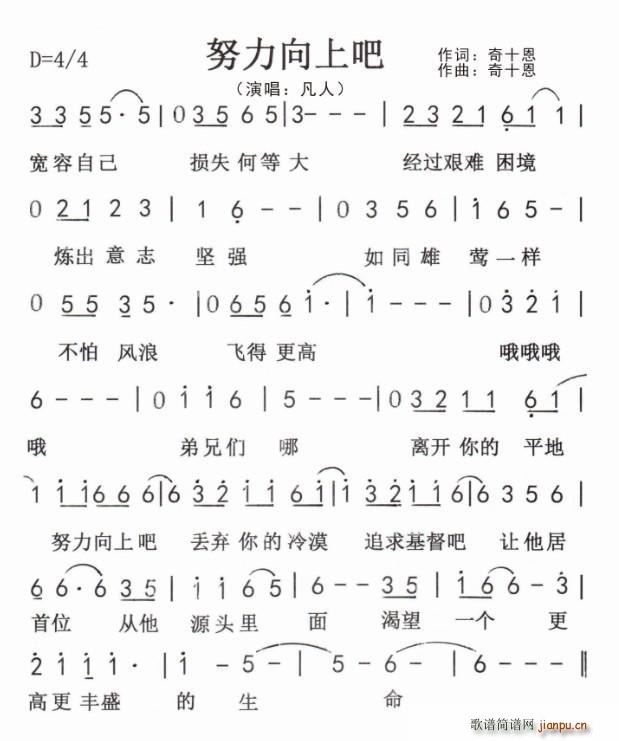 努力向上吧
D=4/4
作词：奇十恩
作曲：奇十恩
（演唱：凡人）
3 3 5 5 5· 5 | 0 3 5 6 5 | 3 - - - | 2 3 2 1 6 1 1 |
宽容自己 损失何等大 经过艰难 困境
0 2 1 2 3 | 1 6 - - | 0 3 5 6 | 1 6 5 - |
炼出意志 坚强 如同雄 莺一样
0 5 5 3 5 · | 0 6 5 6 1 · | 1 - - - | 0 3 2 1 |
不怕 风浪 飞得更高 哦哦哦
6 - - - | 0 1 1 6 | 5 - - - | 0 3 2 1 1 1 6 1 |
哦 弟兄们 哪 离开你的 平地
1 1 1 6 6 6 6 | 6 3 2 1 1 6 1 | 1 3 2 2 1 6 6 | 6 3 5 6 |
努力向上吧 丢弃你的冷漠 追求基督吧 让他居
6 6 · 6 3 5 | 1 1 6 5 | 6 - - 3 5 | 1 6 6 - 3 |
首位 从他 源头里 面 渴望一个 更
2 1 1 1 · | 1 - 5 - | 5 - 6 - | 6 - - - ‖
高更丰盛 的 生 命
歌谱简谱网
jianpu.cn